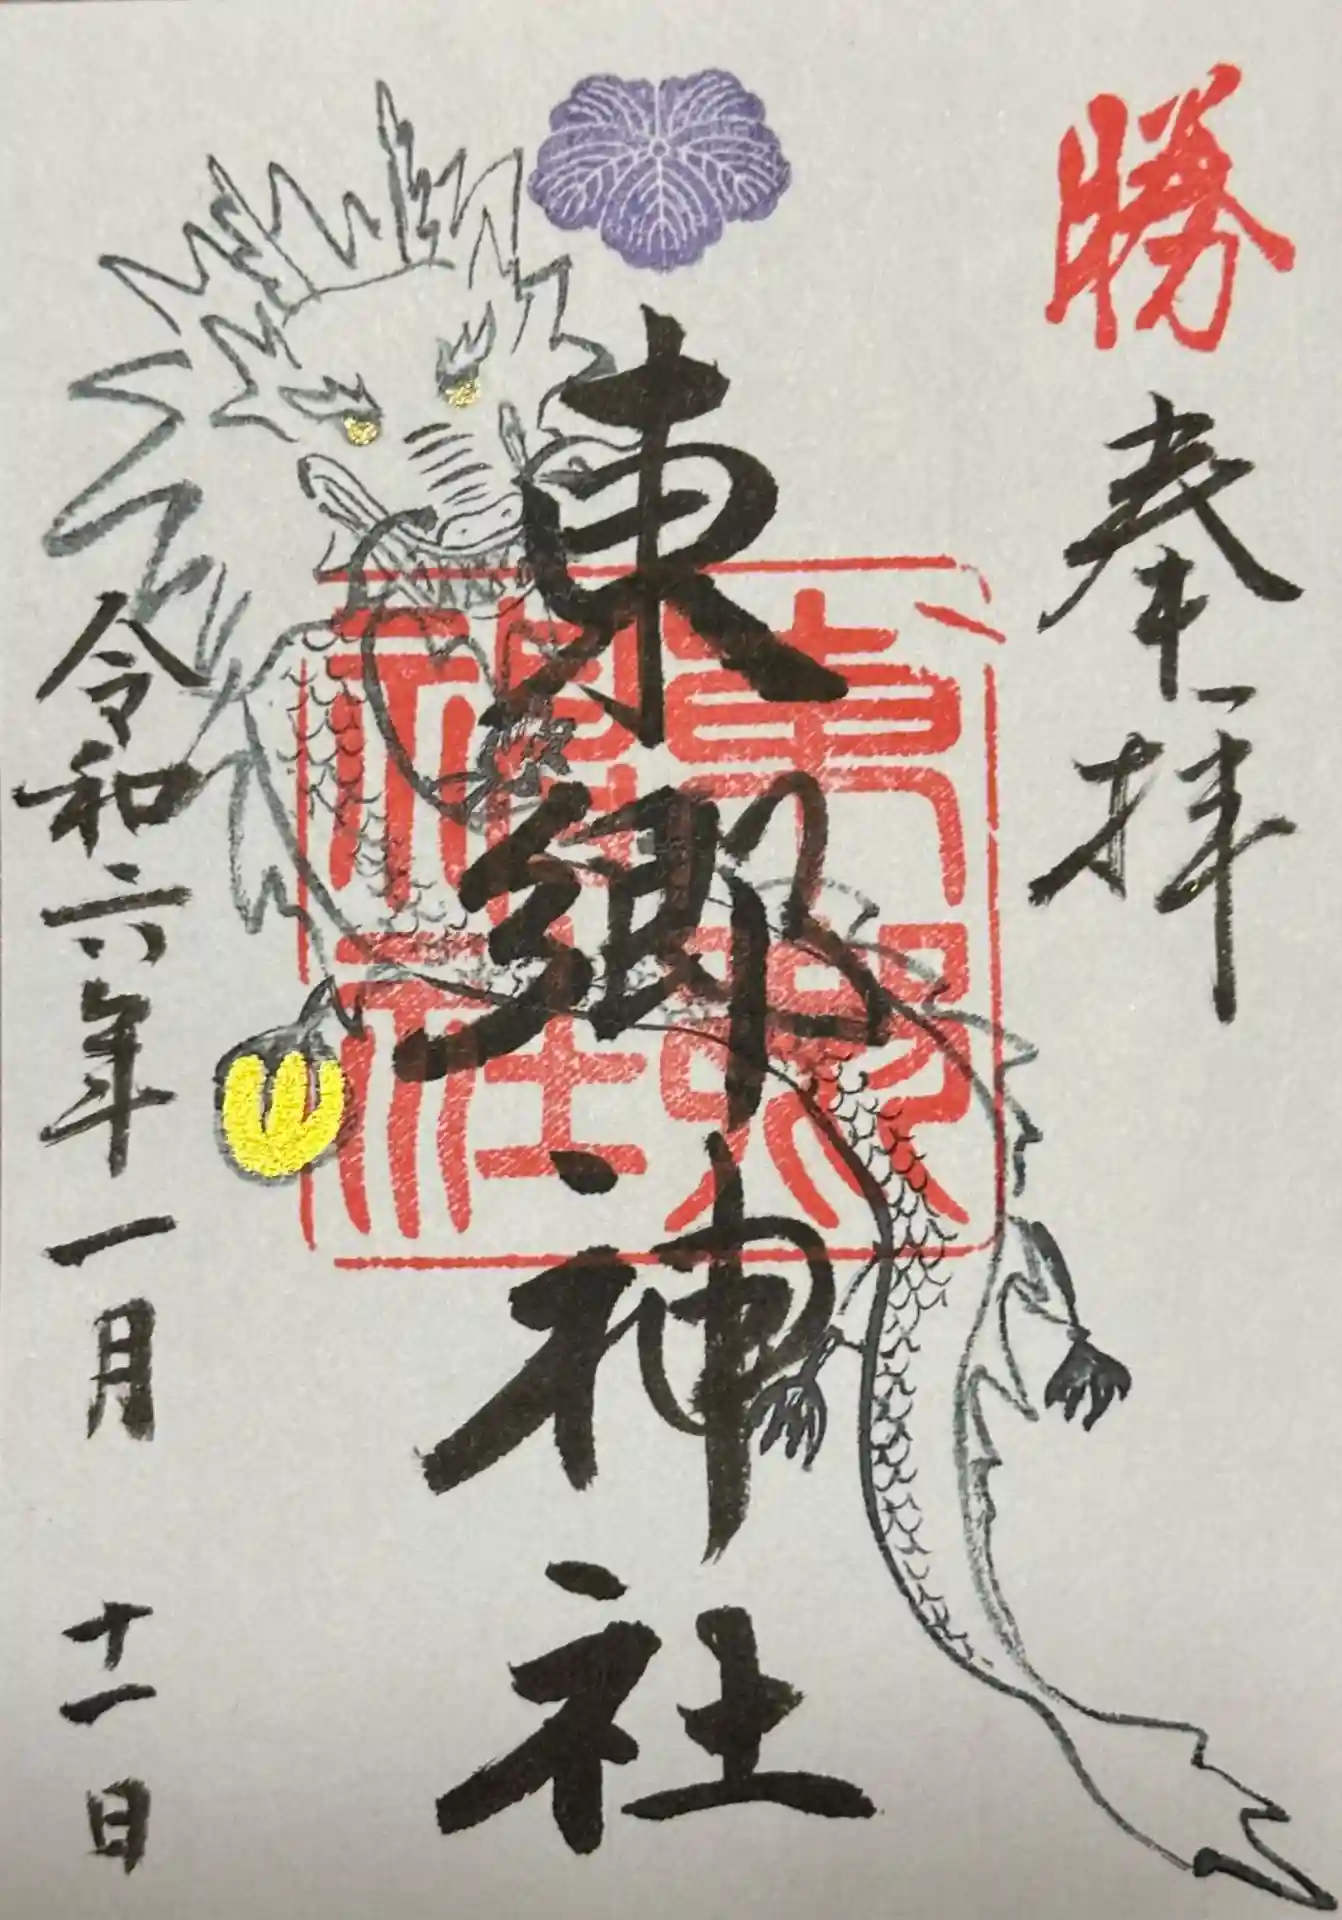 勝
奉拝
東郷神社
東郷神社
令和六年一月十一日